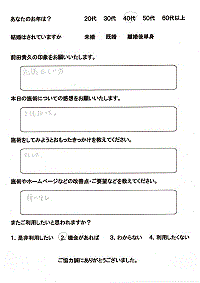 あなたのお年は? 20代 30代 40代 50代 60代以上
結婚はされていますか 未婚 既婚 離婚後単身
前田貴久の印象をお願いいたします。
本日の施術についての感想をお願いいたします。
施術をしてみようとおもったきっかけを教えてください。
施術やホームページなどの改善点・ご要望などを教えてください。
またご利用したいと思われますか?
1. 是非利用したい 2. 機会があれば 3. わからない 4. 利用したくない
ご協力誠にありがとうございました。